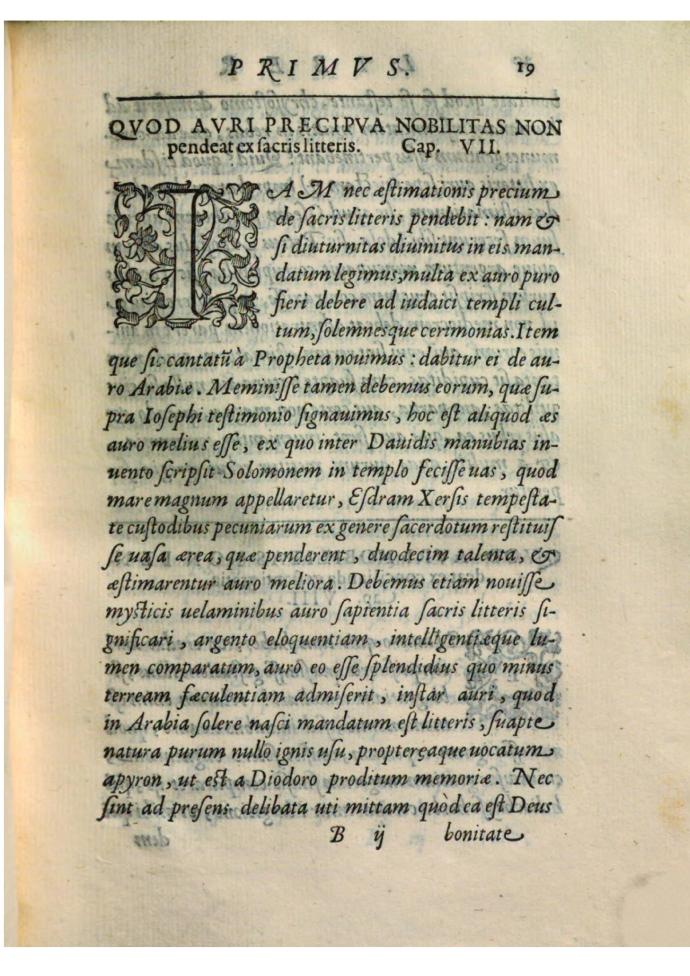 PRIMVS. 19
QVOD AVRI PRECIPVA NOBILITAS NON
pendeat ex sacris litteris. Cap. VII.
IAM nec æstimationis precium
de sacris litteris pendebit : nam &
si diuturnitas diuinitus in eis man-
datum legimus, multa ex auro puro
fieri debere ad iudaici templi cul-
tum, solemnesque cerimonias. Item
que sic cantatũ à Propheta nouimus : dabitur ei de au-
ro Arabiæ. Meminisse tamen debemus eorum, quæ su-
pra Iosephi testimonio signauimus, hoc est aliquod æs
auro melius esse, ex quo inter Dauidis manubias in-
uento scripsit Solomonem in templo fecisse uas, quod
mare magnum appellaretur, Esdram Xersis tempesta-
te custodibus pecuniarum ex genere sacerdotum restituis
se uasa ærea, quæ penderent, duodecim talenta, &
æstimarentur auro meliora. Debemus etiam nouisse
mysticis uelaminibus auro sapientia sacris litteris si-
gnificari, argento eloquentiam, intelligentiæque lu-
men comparatum, auro eo esse splendidius quo minus
terream fæculentiam admiserit, instar auri, quod
in Arabia solere nasci mandatum est litteris, suapte
natura purum nullo ignis usu, proptereaque uocatum
apyron, ut est a Diodoro proditum memoriæ. Nec
sint ad presens delibata uti mittam quòd ea est Deus
B ij bonitate